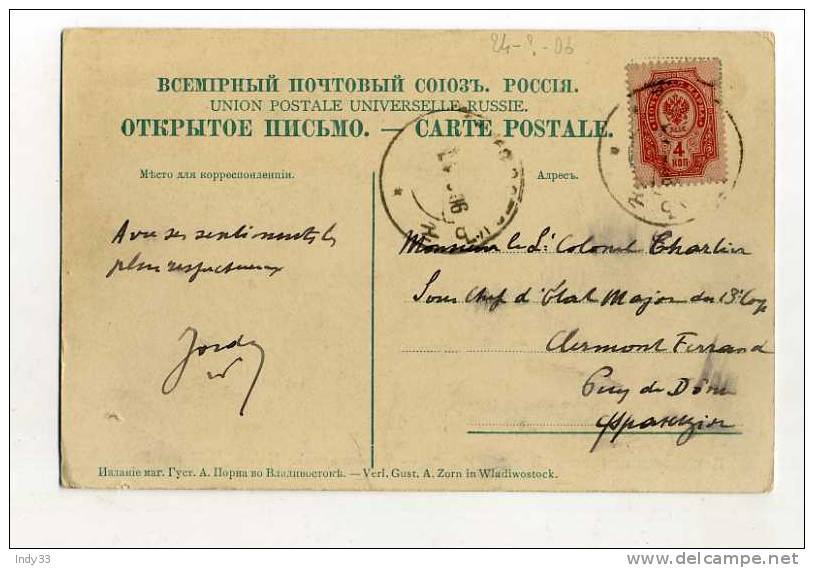 24-2-06
ВСЕМІРНЫЙ ПОЧТОВЫЙ СОЮЗЪ. РОССІЯ.
UNION POSTALE UNIVERSELLE RUSSIE.
ОТКРЫТОЕ ПИСЬМО. — CARTE POSTALE.
4
КОП
Мѣсто для корреспонденціи.
Адресъ.
Avec ses sentiments les
plus respectueux
Monsieur le Lt Colonel Charlier
Sous Chef d'Etat Major du 13e Corps
Clermont Ferrand
Puy de Dôme
Франція
Изданіе маг. Густ. А. Цорна во Владивостокѣ. — Verl. Gust. A. Zorn in Wladiwostock.
Indy33
delcampe.net